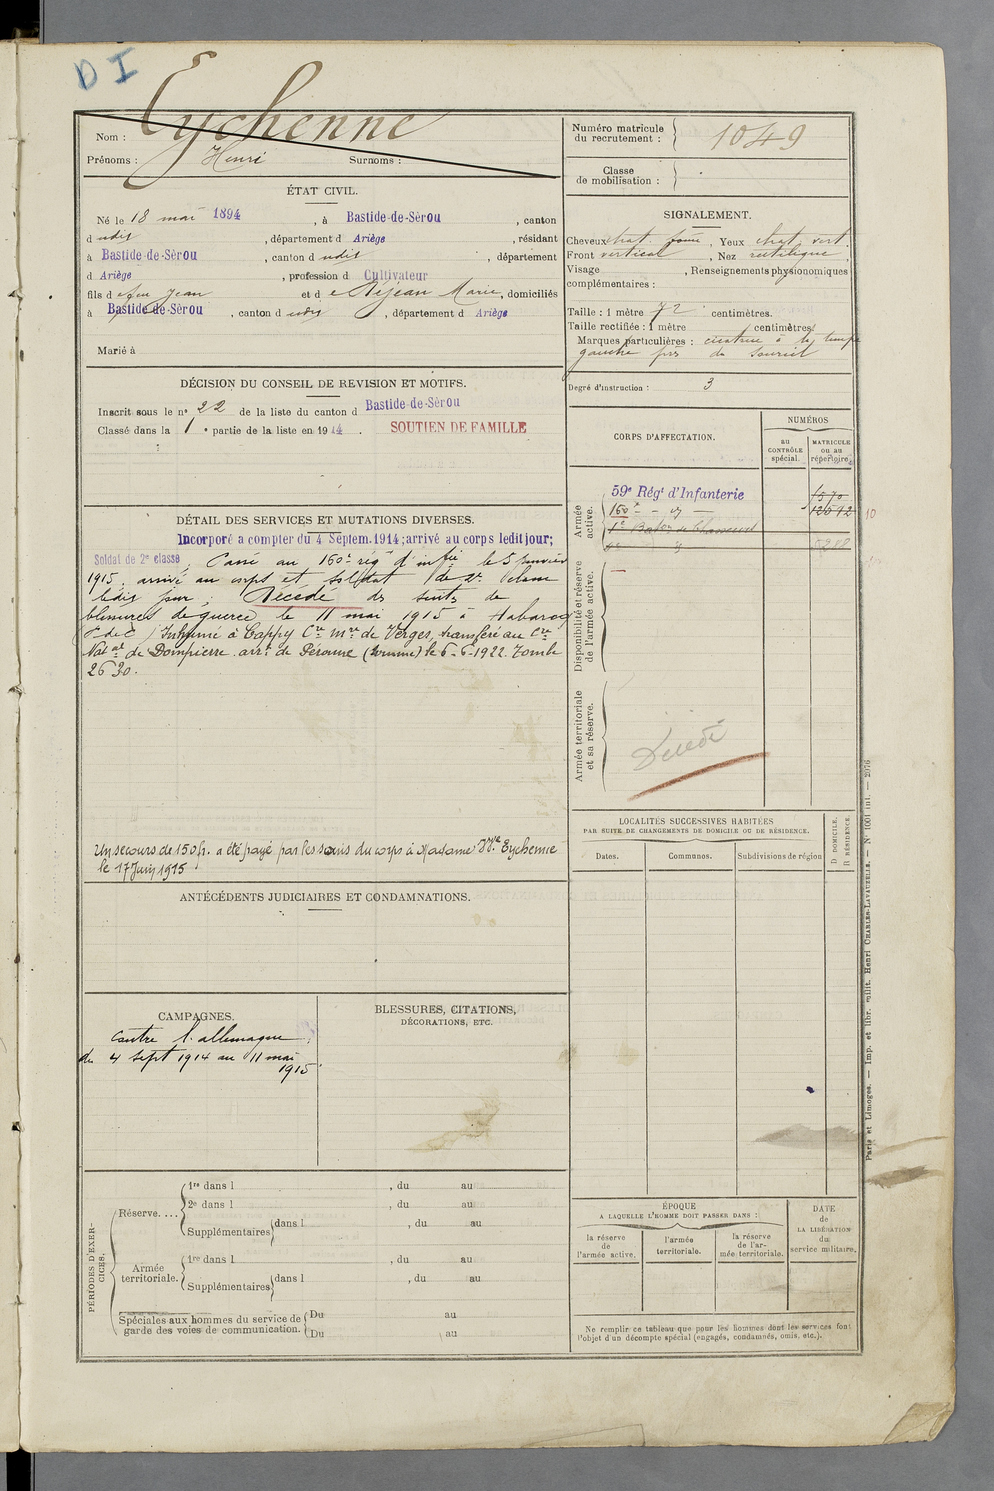 D I
Nom : Eychenne
Prénoms : Henri Surnoms :
Numéro matricule
du recrutement : 1049
Classe
de mobilisation :
ÉTAT CIVIL.
Né le 18 mai 1894, à Bastide-de-Sérou, canton
d udit, département d Ariège, résidant
à Bastide-de-Sérou, canton d udit, département
d Ariège, profession d Cultivateur
fils d e feu Jean et d e Déjean Marie, domiciliés
à Bastide-de-Sérou, canton d udit, département d Ariège
Marié à
SIGNALEMENT.
Cheveux chat. foncé, Yeux chat. vert.
Front vertical, Nez rectiligne,
Visage , Renseignements physionomiques
complémentaires :
Taille : 1 mètre 72 centimètres.
Taille rectifiée : 1 mètre centimètres.
Marques particulières : cicatrice à la tempe
gauche près du sourcil
Degré d'instruction : 3
DÉCISION DU CONSEIL DE REVISION ET MOTIFS.
Inscrit sous le n° 22 de la liste du canton d Bastide-de-Sérou
Classé dans la 1e partie de la liste en 1914.
SOUTIEN DE FAMILLE
DÉTAIL DES SERVICES ET MUTATIONS DIVERSES.
Incorporé à compter du 4 Septem. 1914; arrivé au corps ledit jour;
Soldat de 2e classe. Passé au 160e rég d'infie le 5 janvier
1915, arrivé au corps et soldat de 2e classe
ledit jour; Décédé des suites de
blessures de guerre le 11 mai 1915 à Habarcq
(P. de C.) Inhumé à Cappy Cre Mre de Verges, transféré au Cre
Natal de Dompierre arrt de Péronne (Somme) le 6-6-1922. Tombe
2630.
Un secours de 150 fr. a été payé par les soins du corps à Madame Vve Eychenne
le 17 Juin 1915
CORPS D'AFFECTATION.
NUMÉROS
au
CONTRÔLE
spécial.
MATRICULE
ou au
répertoire.
Armée
active.
59e Régt d'Infanterie 1570
160e - d° - 12012
1er Baton de Chasseurs
5208
10
Disponibilité et réserve
de l'armée active.
Armée territoriale
et sa réserve.
Décédé
LOCALITÉS SUCCESSIVES HABITÉES
PAR SUITE DE CHANGEMENTS DE DOMICILE OU DE RÉSIDENCE.
Dates.
Communes.
Subdivisions de région
D DOMICILE.
R RÉSIDENCE.
ANTÉCÉDENTS JUDICIAIRES ET CONDAMNATIONS.
CAMPAGNES.
Contre l'allemagne
du 4 sept 1914 au 11 mai
1915
BLESSURES, CITATIONS,
DÉCORATIONS, ETC.
PÉRIODES D'EXER-
CICES.
Réserve....
1re dans l , du au
2e dans l , du au
Supplémentaires dans l , du au
Armée
territoriale.
1re dans l , du au
Supplémentaires dans l , du au
Spéciales aux hommes du service de
garde des voies de communication.
Du au
Du au
ÉPOQUE
A LAQUELLE L'HOMME DOIT PASSER DANS :
la réserve
de
l'armée active.
l'armée
territoriale.
la réserve
de l'ar-
mée territoriale.
DATE
de
LA LIBÉRATION
du
service militaire.
Ne remplir ce tableau que pour les hommes dont les services font
l'objet d'un décompte spécial (engagés, condamnés, omis, etc.).
Paris et Limoges. — Imp. et libr. milit. Henri CHARLES-LAVAUZELLE. — N° 1001 int. — 2076